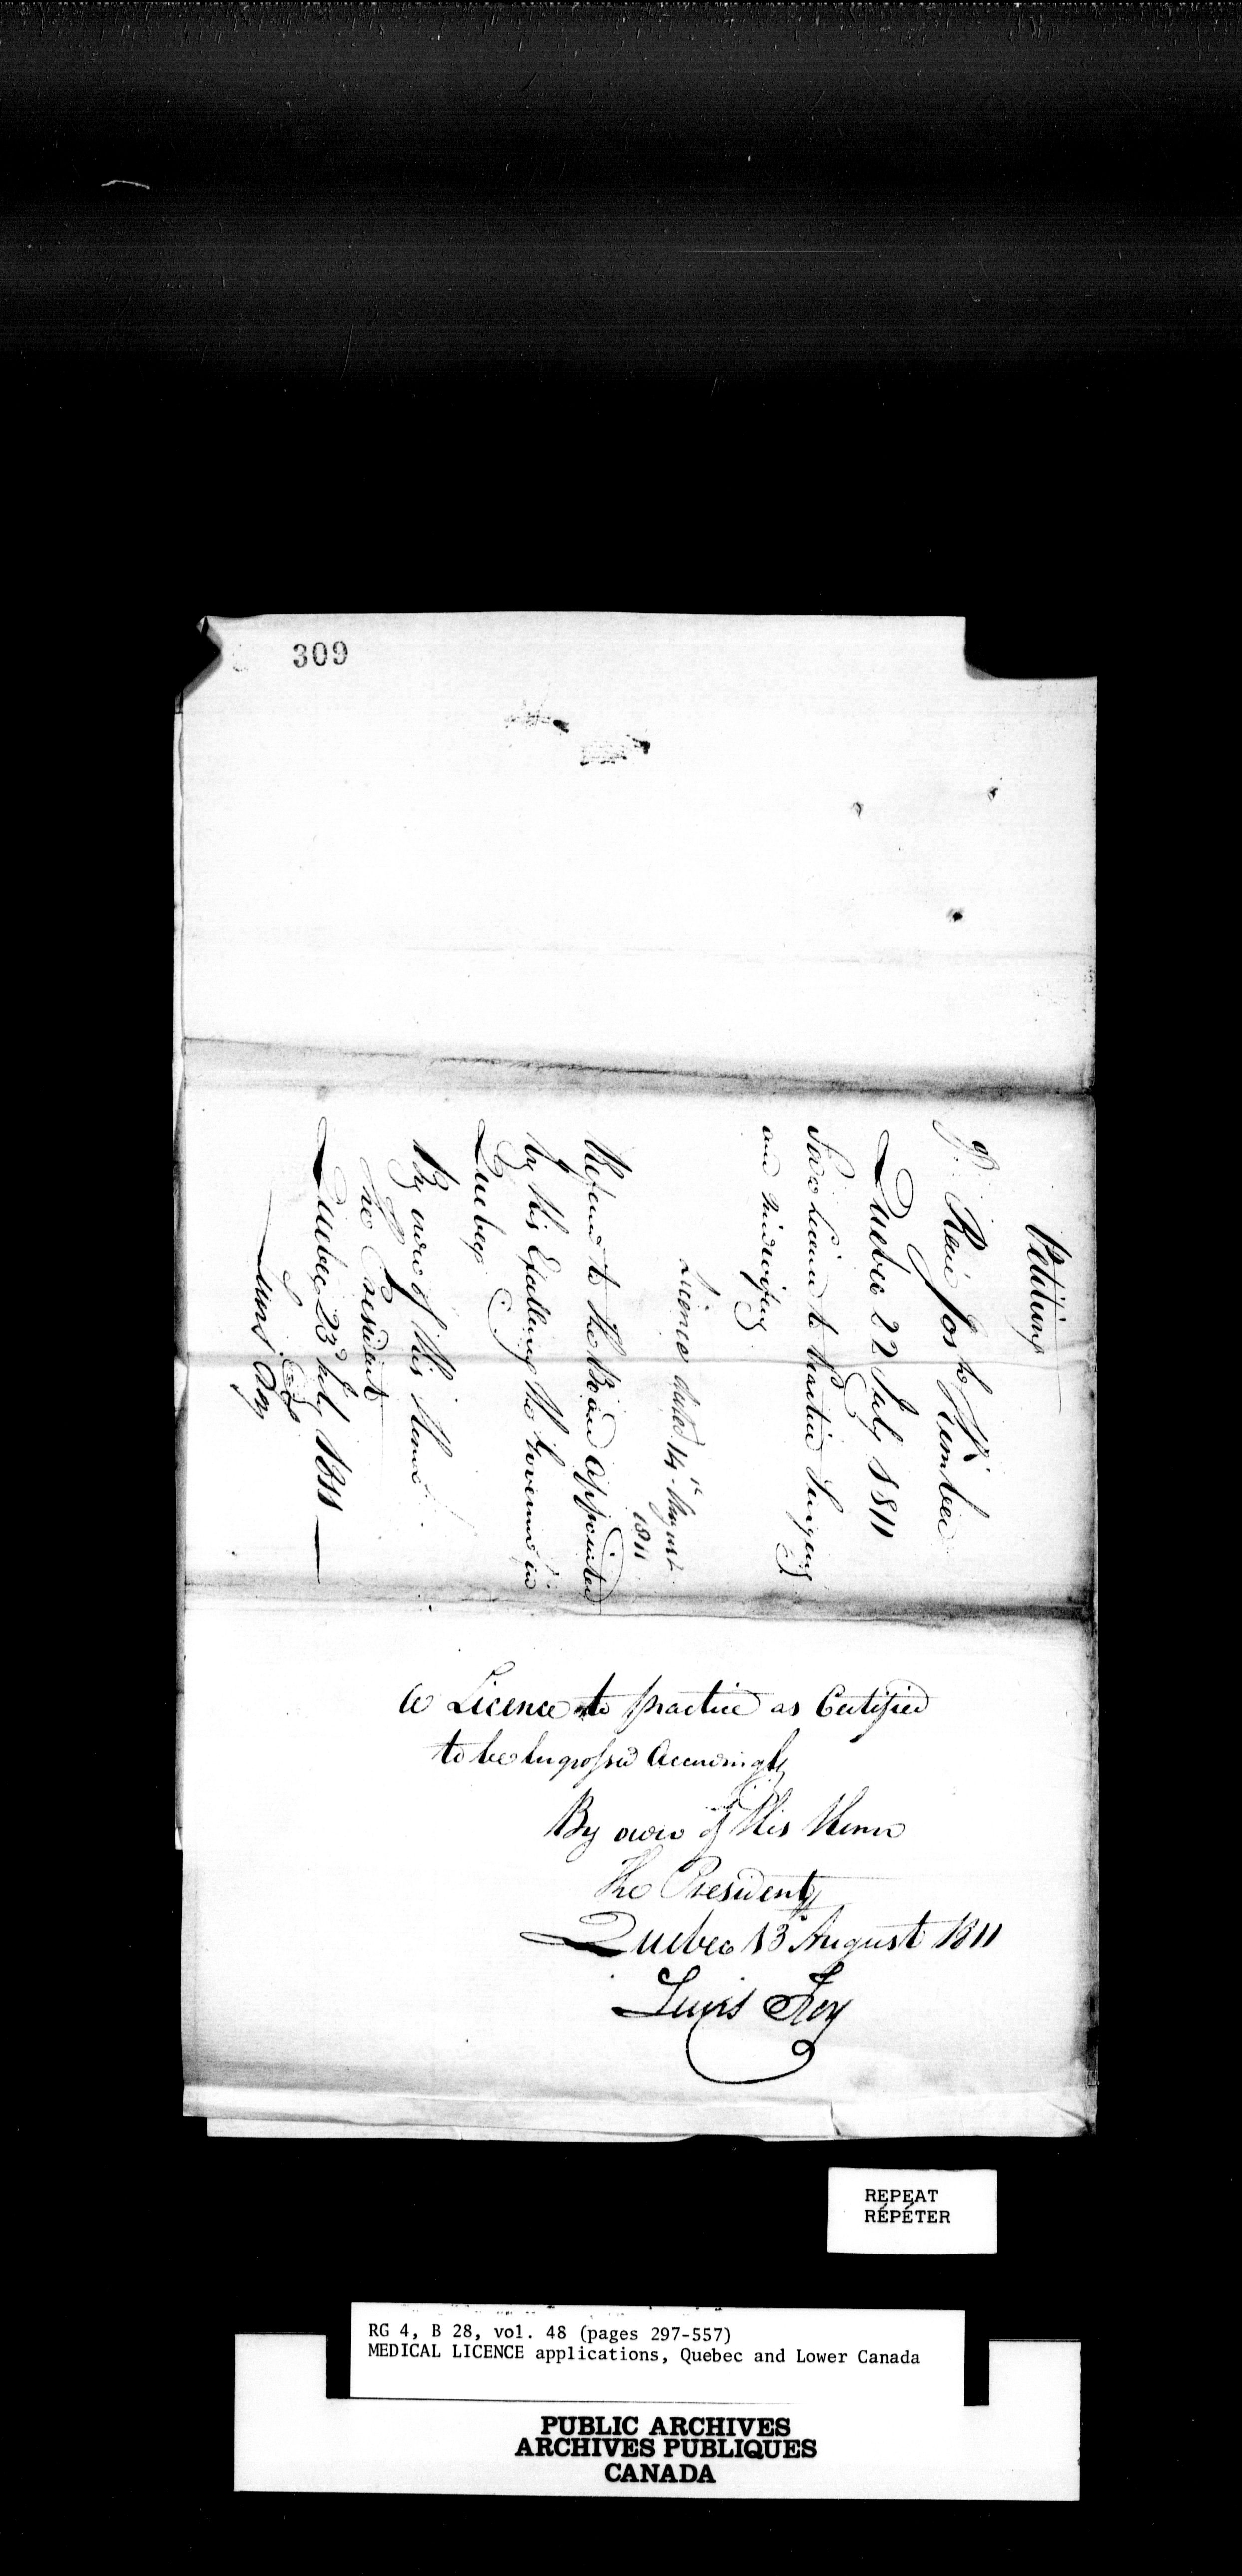 309
Petition
of René Josh Kimber
Quebec 22 July 1811
For a Licence to Practice Surgery
and midwifery
Licence dated 14th August
1811
Referred to the Board appointed
by His Excellency the Governor in
Quebec
By order of His Honor
The President
Quebec 23d July 1811
Louis Foy
A Licence to practice as Certified
to be Engrossed Accordingly
By order of His Honor
The President
Quebec 13th August 1811
Louis Foy
REPEAT
RÉPÉTER
RG 4, B 28, vol. 48 (pages 297-557)
MEDICAL LICENCE applications, Quebec and Lower Canada
PUBLIC ARCHIVES
ARCHIVES PUBLIQUES
CANADA